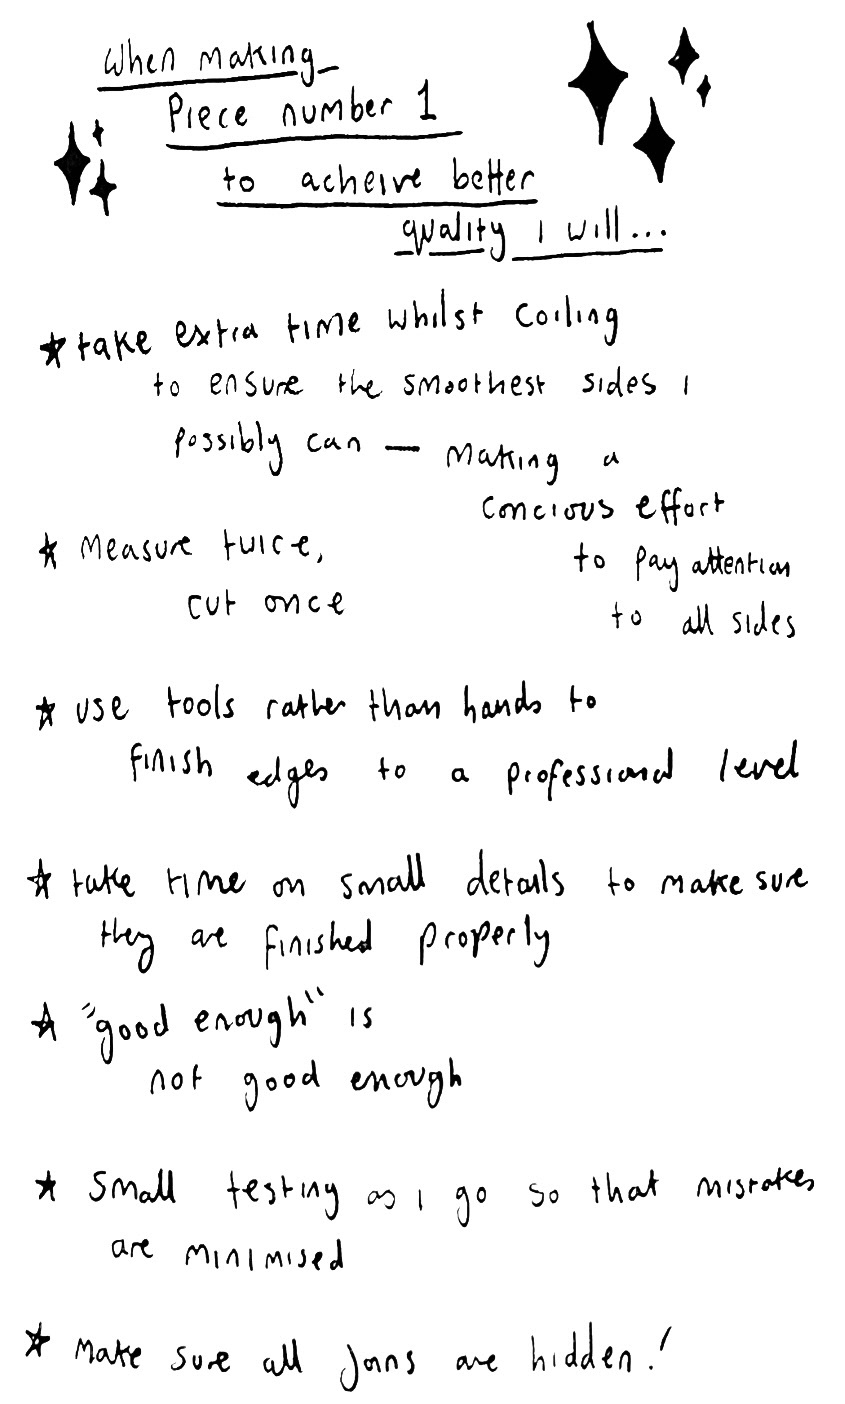 When making
Piece number 1
to acheive better
quality I will...
★ take extra time whilst coiling
to ensure the smoothest sides I
possibly can — making a
concious effort
to pay attention
to all sides
★ Measure twice,
cut once
★ use tools rather than hands to
finish edges to a professional level
★ take time on small details to make sure
they are finished properly
★ "good enough" is
not good enough
★ Small testing as I go so that mistakes
are minimised
★ Make sure all joins are hidden!